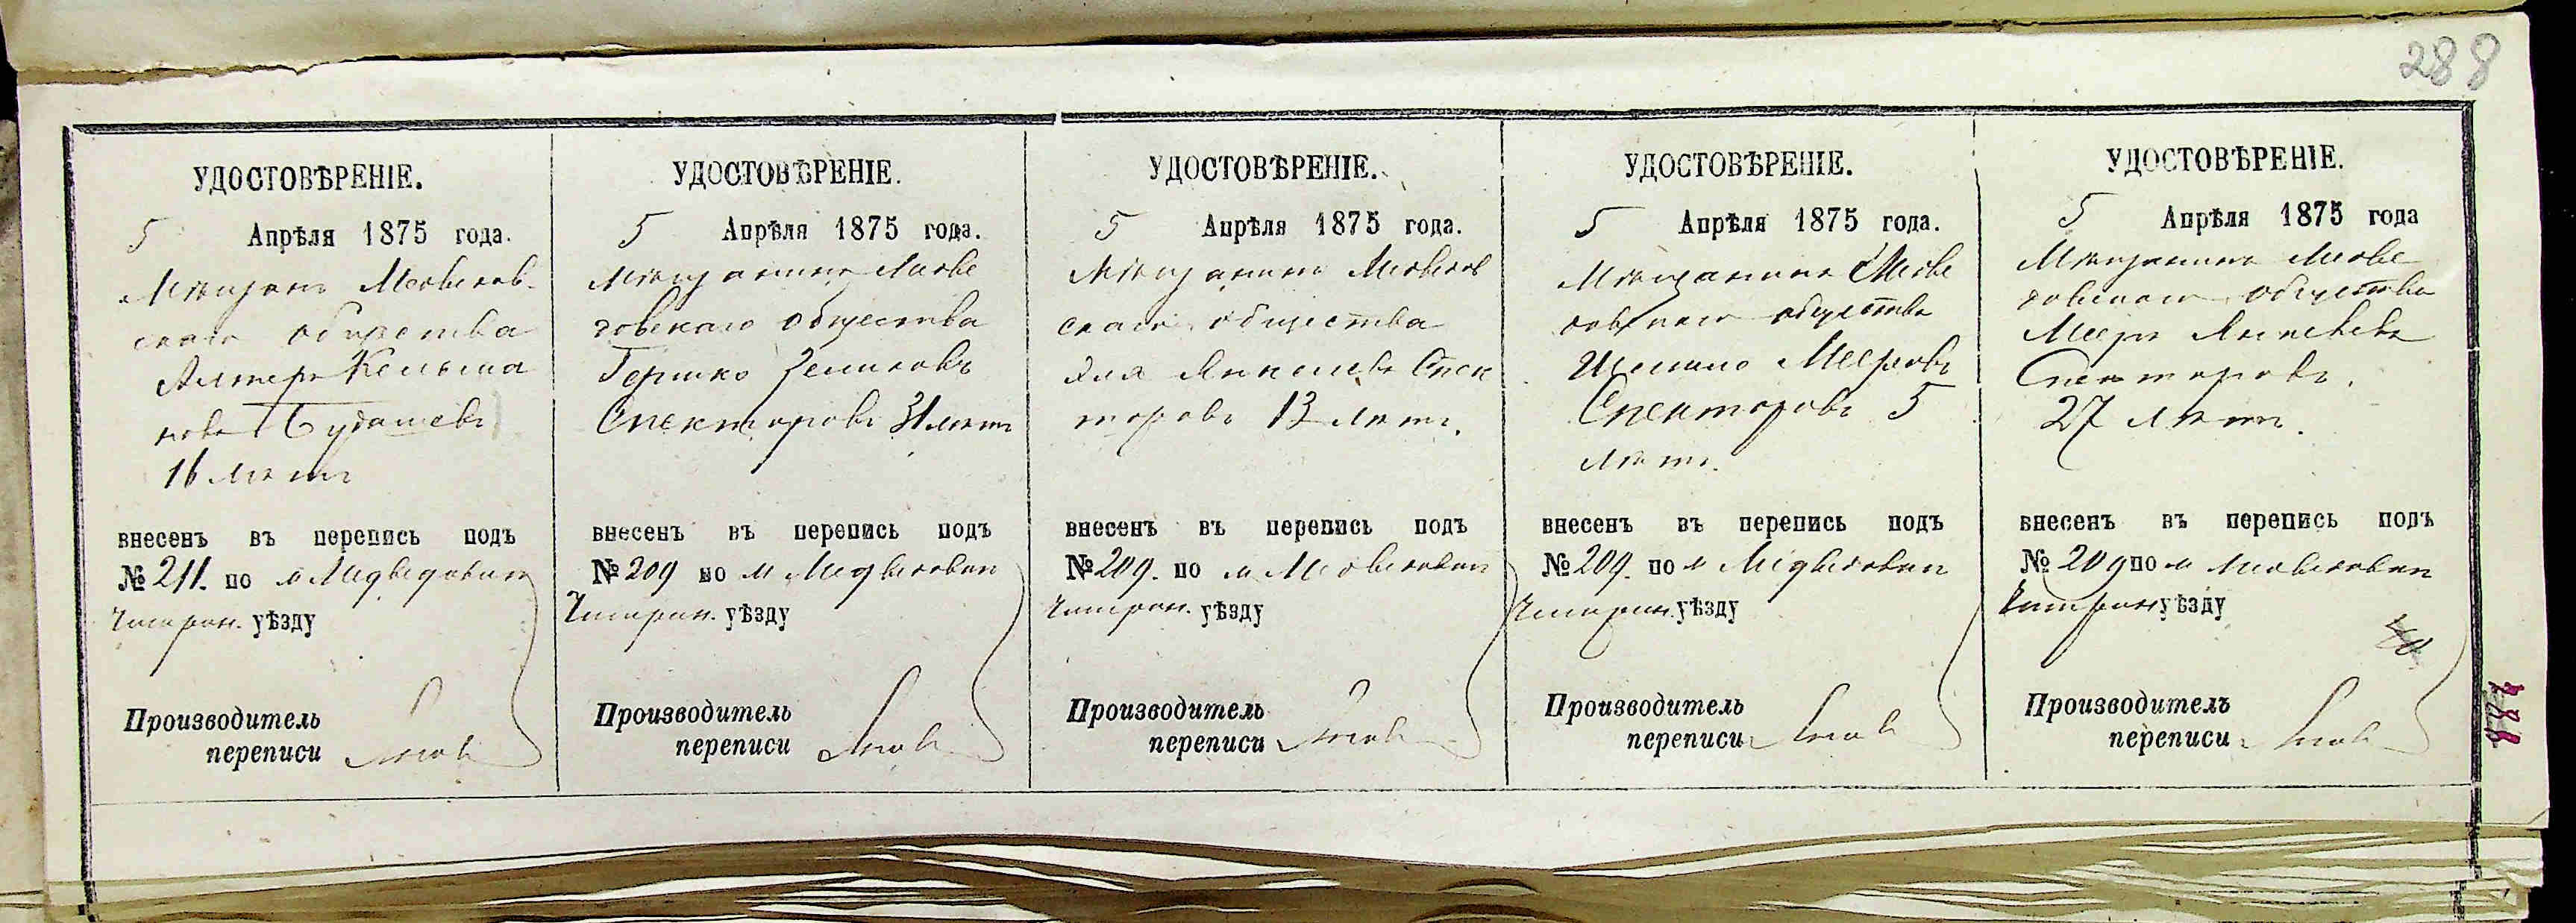 288
УДОСТОВѢРЕНІЕ.
5 Апрѣля 1875 года.
Мѣщанъ Медведов-
скаго общества
Алтеръ Кельма
новъ Будашевъ
16 лѣтъ
внесенъ въ перепись подъ
№ 211. по м Медведовки
Чигирин. уѣзду
Производитель
переписи
УДОСТОВѢРЕНІЕ.
5 Апрѣля 1875 года.
Мѣщанинъ Медве
довскаго общества
Гершко Зеликовъ
Спекторовъ 31 лѣтъ
внесенъ въ перепись подъ
№ 209 по м Медведовки
Чигирин. уѣзду
Производитель
переписи
УДОСТОВѢРЕНІЕ.
5 Апрѣля 1875 года.
Мѣщанинъ Медведов
скаго общества
Эля Янкелевъ Спек
торовъ 13 лѣтъ.
внесенъ въ перепись подъ
№ 209. по м Медведовки
Чигирин. уѣзду
Производитель
переписи
УДОСТОВѢРЕНІЕ.
5 Апрѣля 1875 года.
Мѣщанинъ Медве
довскаго общества
Мееровъ
Спекторовъ 5
лѣтъ.
внесенъ въ перепись подъ
№ 209. по м Медведовки
Чигирин. уѣзду
Производитель
переписи
УДОСТОВѢРЕНІЕ.
5 Апрѣля 1875 года
Мѣщанинъ Медве
довскаго общества
Мееръ Янкелевъ
Спекторовъ.
27 лѣтъ.
внесенъ въ перепись подъ
№ 209 по м Медведовки
Чигирин уѣзду
Производитель
переписи